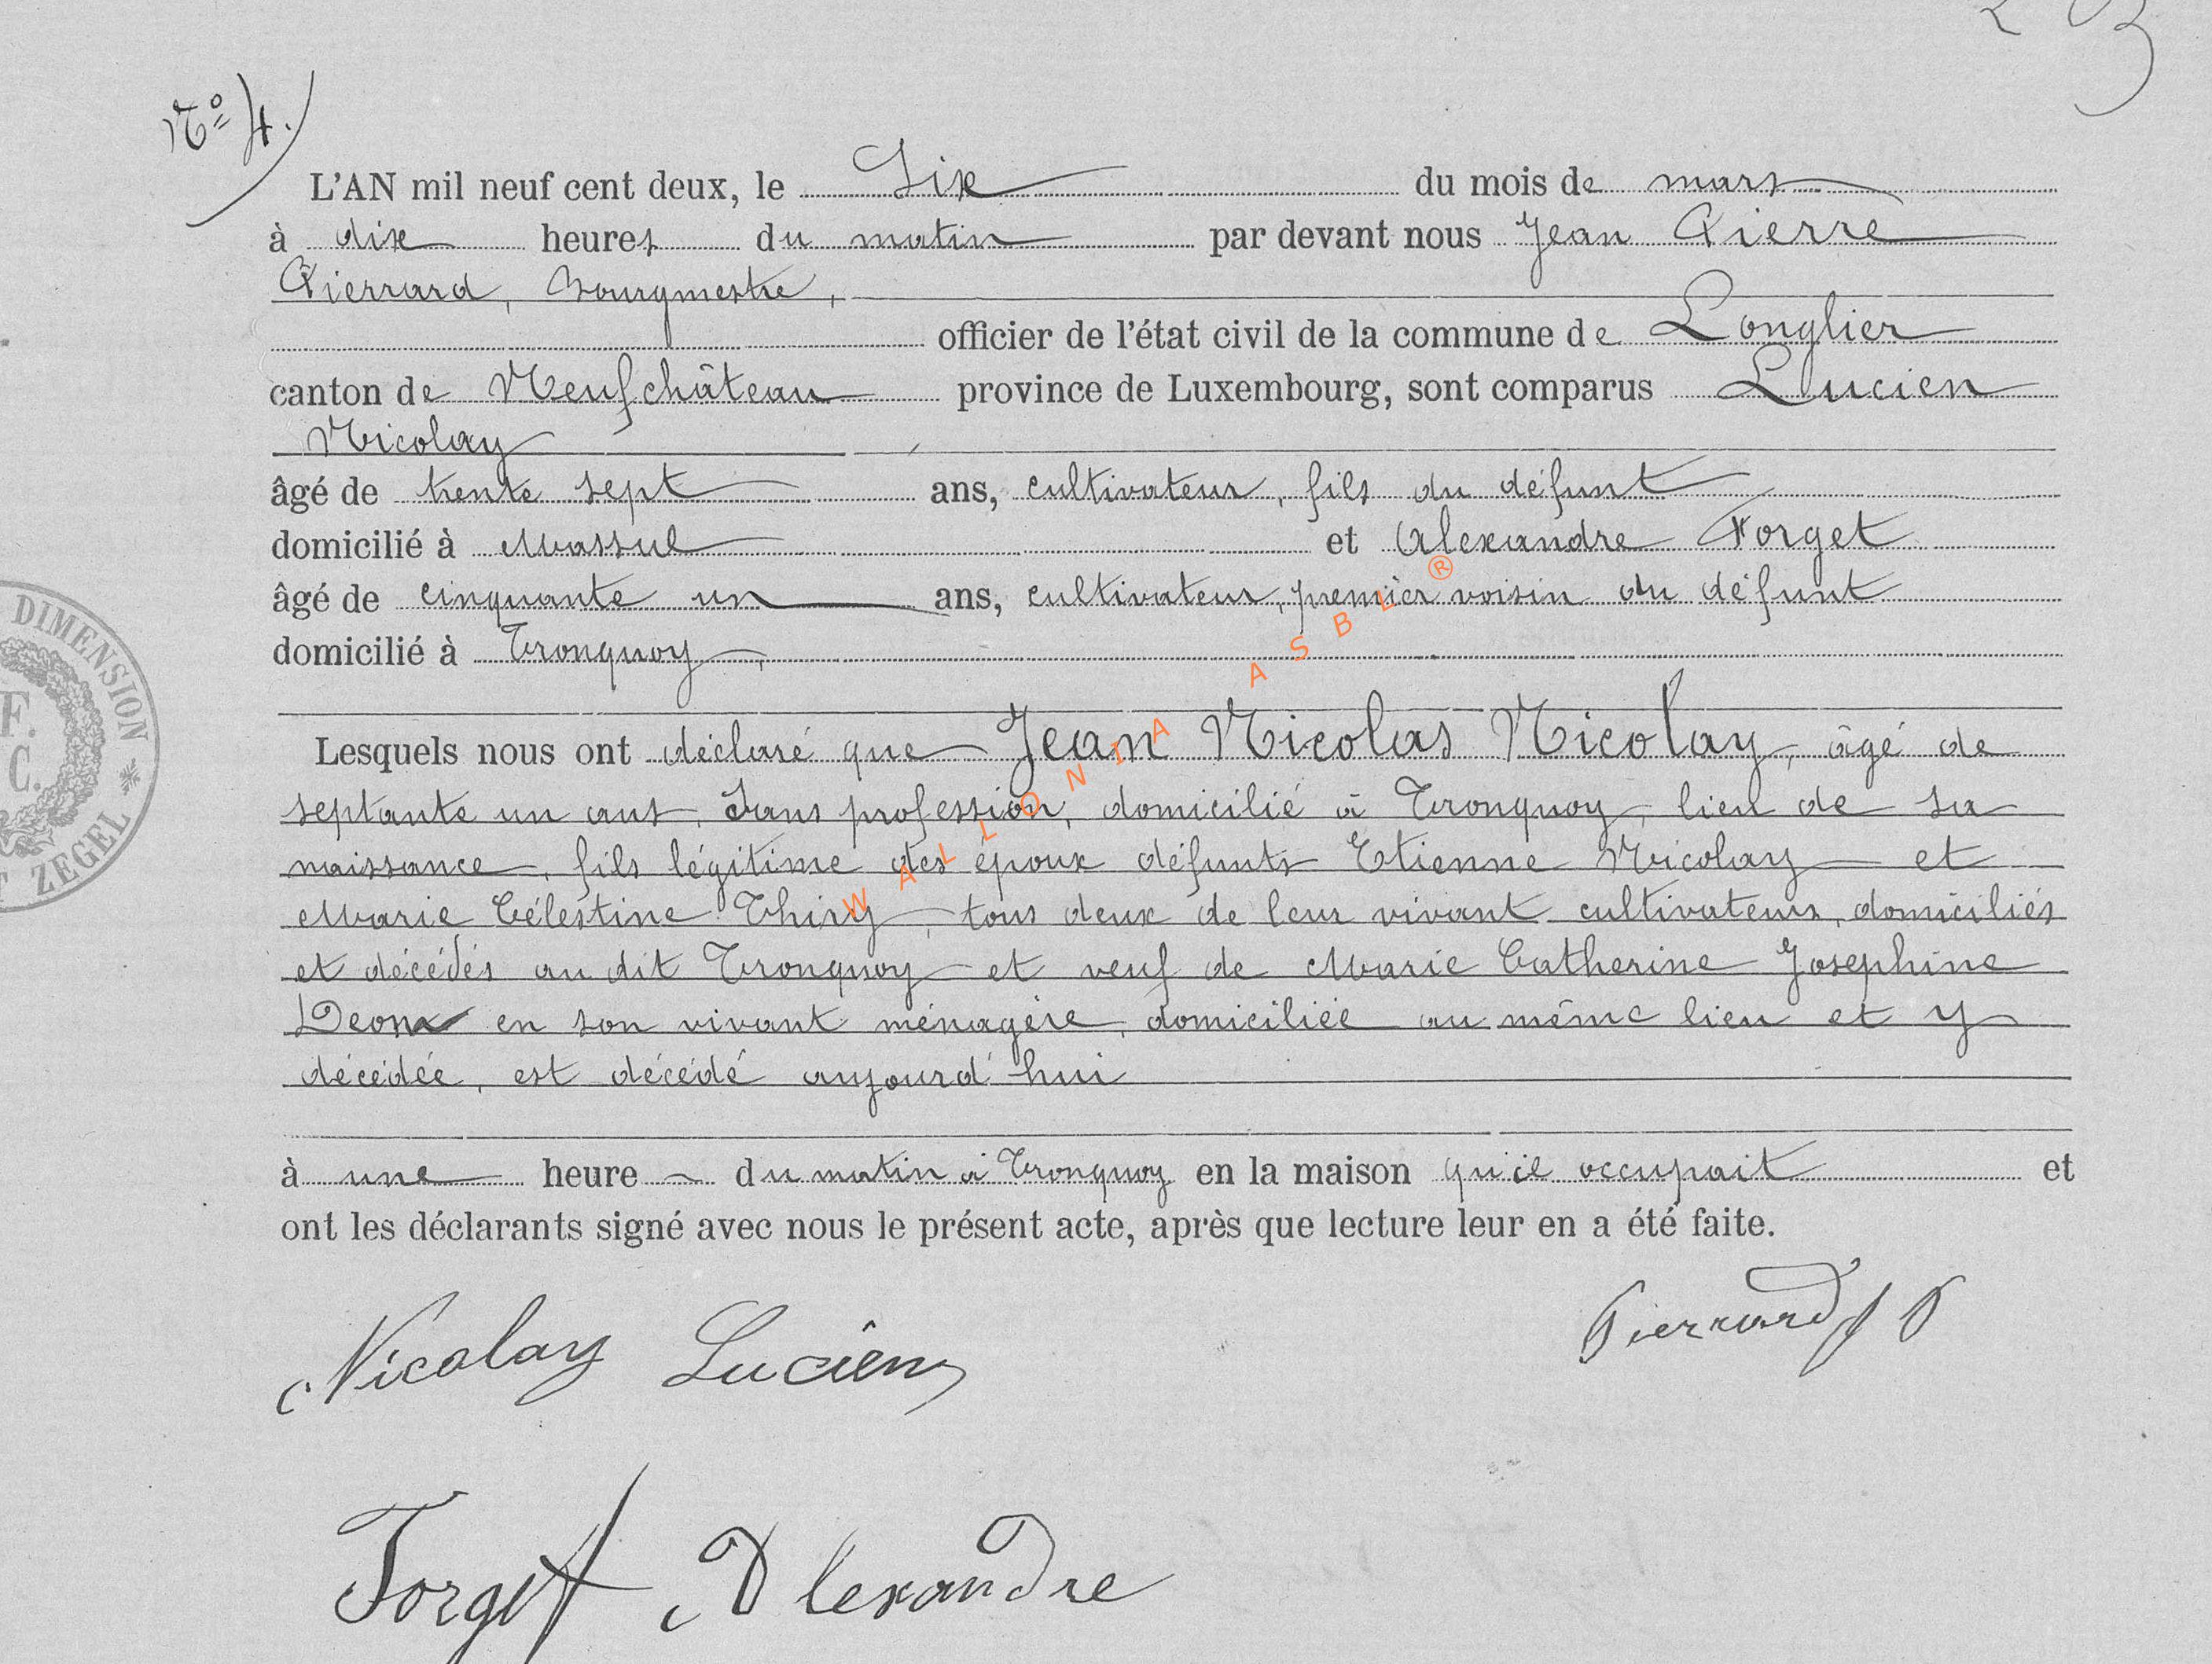 N° 4.
L'AN mil neuf cent deux, le Six du mois de mars
à dix heures du matin par devant nous Jean Pierre
Pierrard, Bourgmestre,
officier de l'état civil de la commune de Longlier
canton de Neufchâteau province de Luxembourg, sont comparus Lucien
Nicolay
âgé de trente sept ans, cultivateur, fils du défunt
domicilié à Massul et Alexandre Forget
âgé de cinquante un ans, cultivateur, premier voisin du défunt
domicilié à Tronquoy,
Lesquels nous ont déclaré que Jean Nicolas Nicolay, âgé de
septante un ans, sans profession, domicilié à Tronquoy, lieu de sa
naissance, fils légitime des époux défunts Etienne Nicolay et
Marie Célestine Thiry, tous deux de leur vivant cultivateurs, domiciliés
et décédés au dit Tronquoy et veuf de Marie Catherine Josephine
en son vivant ménagère, domiciliée au même lieu et y
décédée, est décédé aujourd'hui
à une heure du matin à Tronquoy en la maison qu'il occupait et
ont les déclarants signé avec nous le présent acte, après que lecture leur en a été faite.
Nicolay Lucien
Pierrard J P
Forget Alexandre
DIMENSION
F.
C.
ZEGEL
WALLONIA ASBL ®